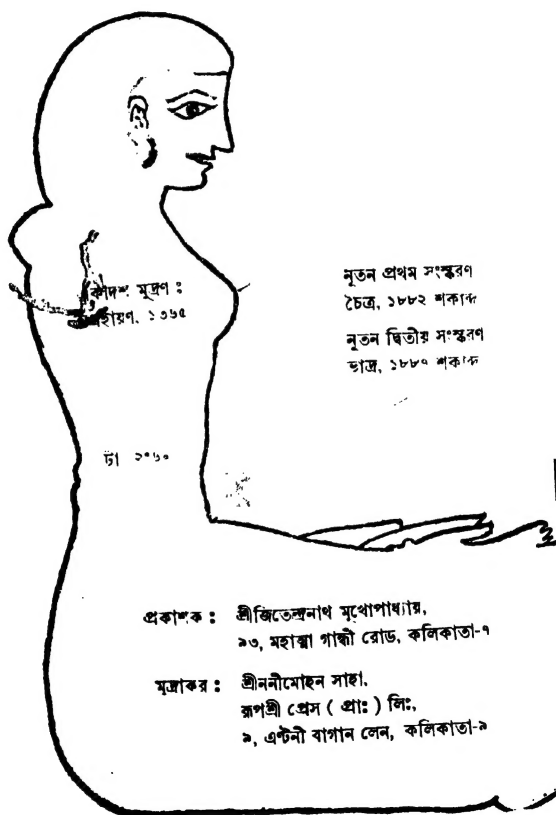 মুদ্রণ :
১৩৬৫
টা ২*৬০
নূতন প্রথম সংস্করণ
চৈত্র, ১৮৮২ শকাব্দ
নূতন দ্বিতীয় সংস্করণ
ভাদ্র, শকাব্দ
প্রকাশক : শ্রীজিতেন্দ্রনাথ মুখোপাধ্যায়,
৯৩, মহাত্মা গান্ধী রোড, কলিকাতা-৭
মুদ্রাকর : শ্রীননীমোহন সাহা,
রূপশ্রী প্রেস ( প্রাঃ ) লিঃ,
৯, এণ্টনী বাগান লেন, কলিকাতা-৯